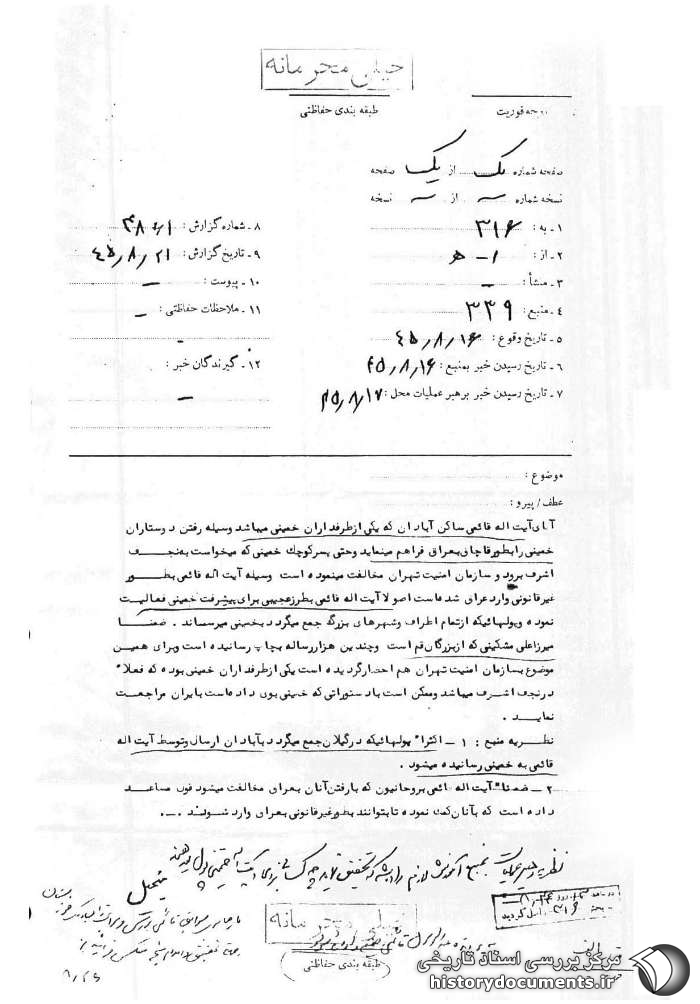 خیلی محرمانه
درجه فوریت
طبقه بندی حفاظتی
صفحه شماره یک از یک صفحه
نسخه شماره ـ از ـ نسخه
۱ ـ به : ۳۱۶
۲ ـ از : ۱ـ ه
۳ ـ منشأ : ـ
۴ ـ منبع : ۳۳۹
۵ ـ تاریخ وقوع : ۴۵٫۸٫۱۶
۶ ـ تاریخ رسیدن خبر بمنبع : ۴۵٫۸٫۱۶
۷ ـ تاریخ رسیدن خبر برهبر عملیات محل : ۴۵٫۸٫۱۷
۸ ـ شماره گزارش :
۹ ـ تاریخ گزارش : ۴۵٫۸٫۲۱
۱۰ ـ پیوست : ـ
۱۱ ـ ملاحظات حفاظتی : ـ
۱۲ ـ گیرندگان خبر :
ـ
موضوع :
عطف / پیرو :
آقای آیت اله قائمی ساکن آبادان که یکی ازطرفداران خمینی میباشد وسیله رفتن دوستاران
خمینی رابطورقاچاق بعراق فراهم مینماید وحتی پسرکوچك خمینی که میخواست به نجف
اشرف برود و سازمان امنیت تهران مخالفت مینموده است وسیله آیت اله قائمی بطور
غیرقانونی واردعراق شده است اصولا آیت اله قائمی بطرزعجیبی برای پیشرفت خمینی فعالیت
نموده وپولهائیکه ازتمام اطراف وشهرهای بزرگ جمع میگردد بخمینی میرساند . ضمنا
میرزاعلی مشکینی که ازبزرگان قم است وچندین هزاررساله بچاپ رسانیده است وبرای همین
موضوع بسازمان امنیت تهران هم احضارگردیده است یکی ازطرفداران خمینی بوده که فعلا"
درنجف اشرف میباشد وممکن است بادستوراتی که خمینی بوی داده است بایران مراجعت
نماید .
نظریه منبع : ۱ ـ اکثرا" پولهائیکه درگیلان جمع میگردد بآبادان ارسال وتوسط آیت اله
قائمی به خمینی رسانیده میشود .
۲ ـ ضمنا" آیت اله قائمی بروحانیون که بارفتن آنان بعراق مخالفت میشود قول مساعد
داده است که بآنان کمك نموده تابتوانند بطورغیرقانونی بعراق وارد شوند .
نظریه رهبر عملیات بمنبع آموزش لازم داده شد که تحقیق نماید چه کسانی برای آیت اله خمینی پول میدهند
خیلی محرمانه
طبقه بندی حفاظتی
مرکز بررسی اسناد تاریخی
historydocuments.ir